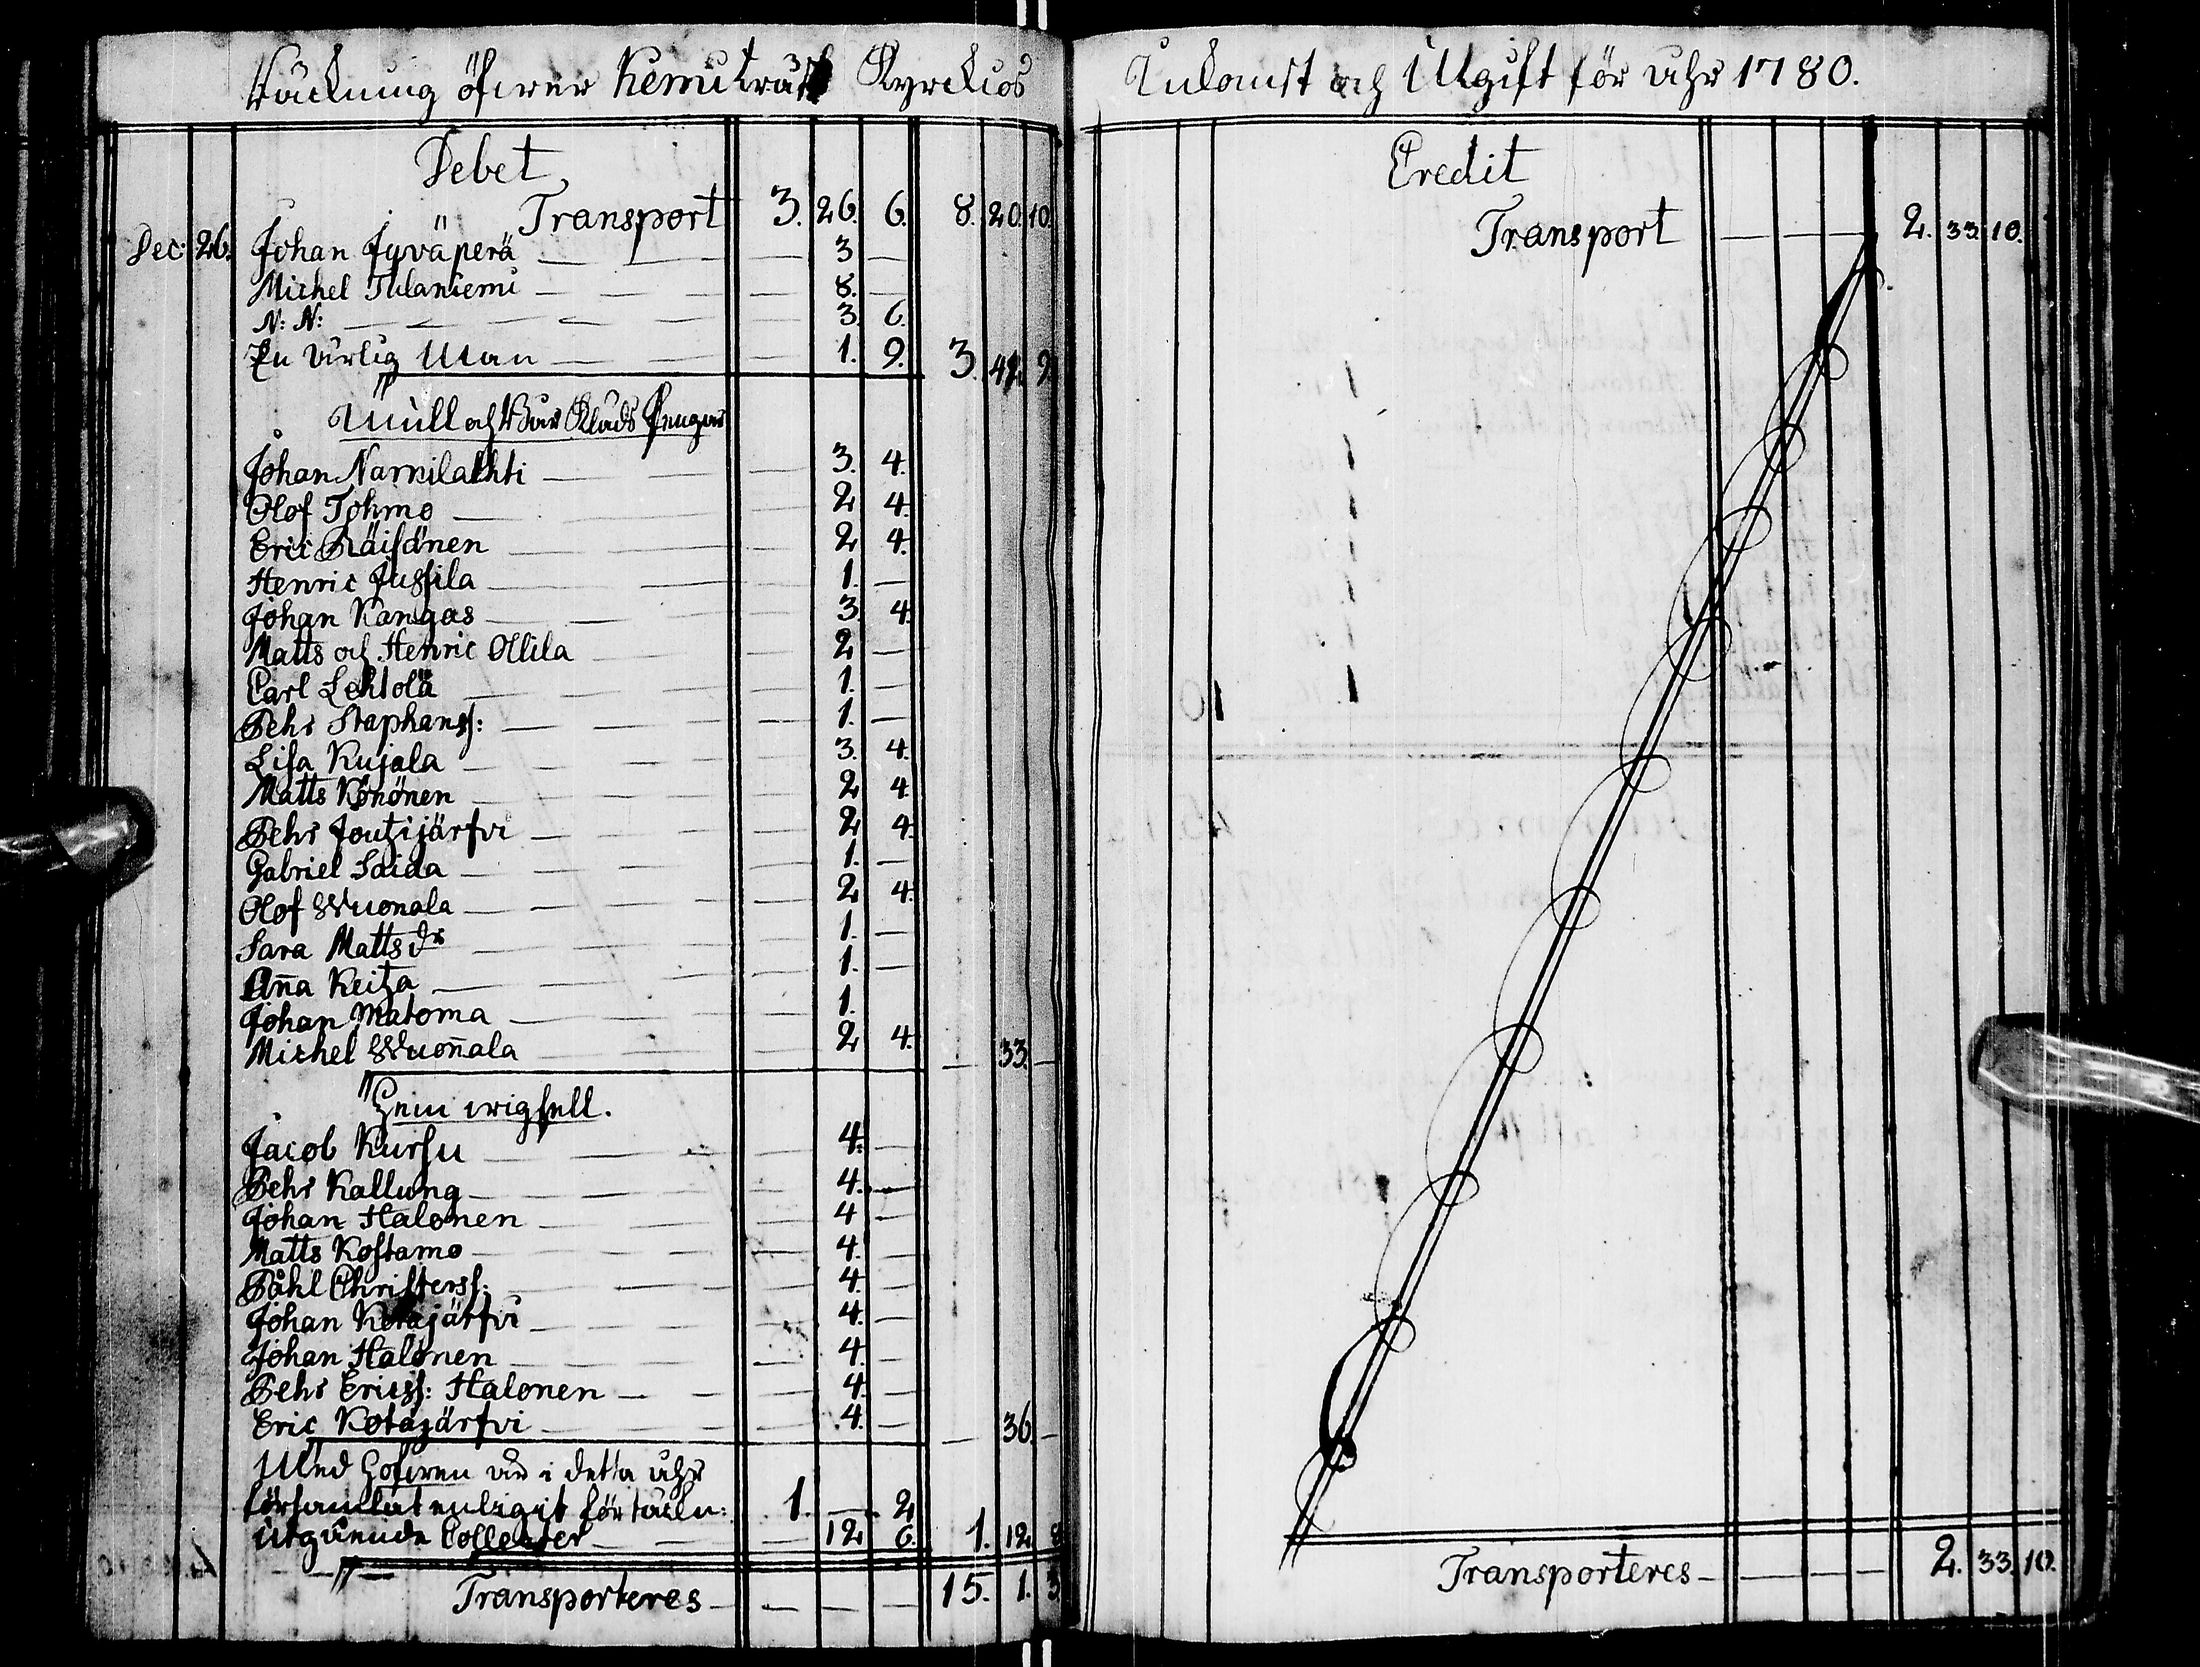 Räckning öfwer Kemiträsk Kyrckios Inkomst och Utgift för åhr 1780.
Debet
Transport 3. 26. 6. 8. 20. 10.
Dec: 26. Johan Jyväperä — 3 —
Michel Tulaniemi — 8. —
N: N: — 3. 6.
En ärlig Man — 1. 9. 3. 42. 9.
Mull och Bår Kläds Pengar
Johan Narkilahti — 3. 4.
Olof Tohmo — 2 4.
Eric Räisänen — 2 4.
Henric Jussila — 1. —
Johan Kangas — 3. 4.
Matts och Henric Ollila — 2 —
Carl Lehtola — 1. —
Pehr Staphanss: — 1. —
Lisa Kujala — 3. 4.
Matts Könönen — 2 4
Pehr Joutzijärfvi — 2 4.
Gabriel Saida — 1. —
Olof Wuonala — 2 4.
Sara Mattsdr — 1. —
Anna Keitza — 1. —
Johan Matoma — 1.
Michel Wuonnala — 2 4. — 33. —
Hemwigsell.
Jacob Kursu — 4. —
Pehr Kallung — 4. —
Johan Halonen — 4 —
Matts Kostamo — 4. —
Påhl Christerss: — 4. —
Johan Kotajärfvi — 4. —
Johan Halonen — 4. —
Pehr Ericss: Halonen — 4. —
Eric Kotajärfvi — 4. — — 36. —
Med Hofwen är i detta åhr
församlat enligit förteckn: 1. — 2
Utgående Collecter — 12 6. 1. 12 8
Transporteres — 15. 1. 3
Credit
Transport — 2. 33. 10.
Transporteres — 2. 33. 10.